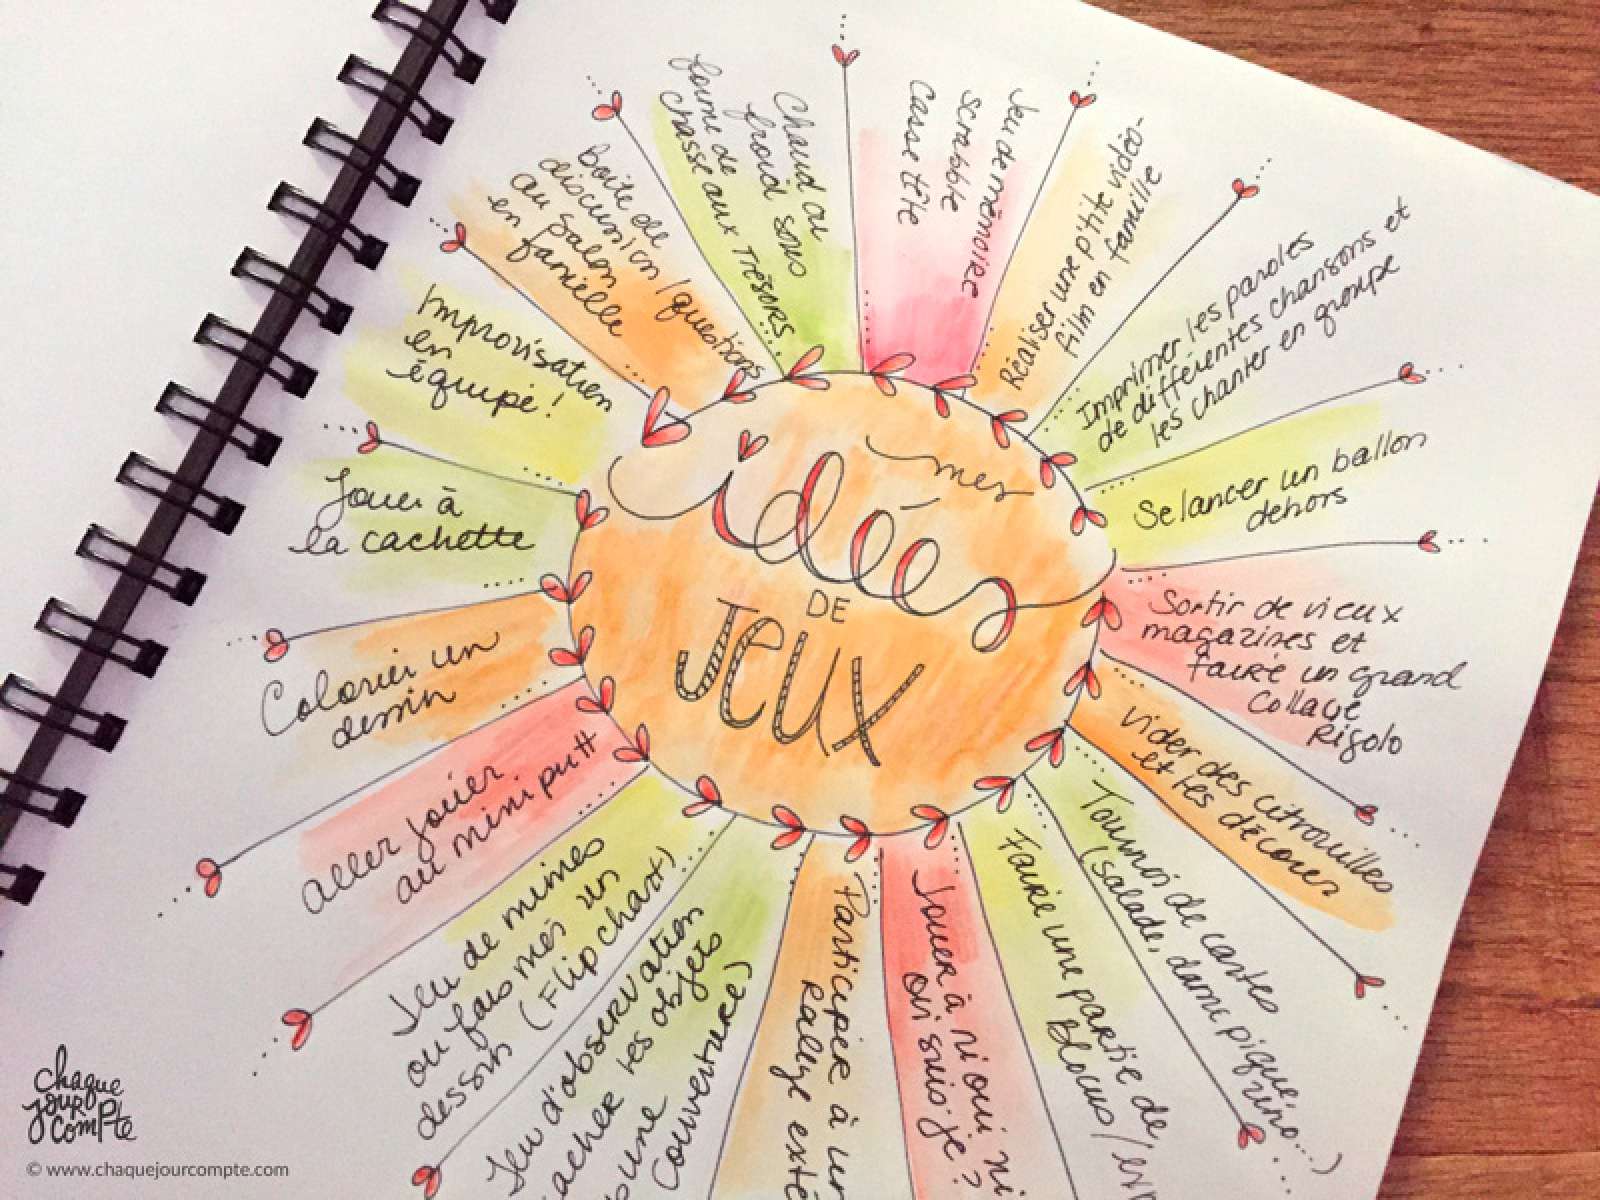 mes
idées
DE
JEUX
Casse tête
Scrabble
Jeu de mémoire
Réaliser une p'tite vidéo-
film en famille
Imprimer les paroles
de différentes chansons et
les chanter en groupe
Se lancer un ballon
dehors
Sortir de vieux
magazines et
faire un grand
collage
Rigolo
Vider des citrouilles
et les décorer
Tournoi de cartes
(salade, dame pique,
zino...)
Faire une partie de
Blocus/
Jouer à ni oui ni
Qui suis-je?
Participer à un
Rallye exté
Jeu d'observation
cacher les objets
s une
couverture)
Jeu de mimes
ou fais mes un
dessin (Flip chart)
aller jouer
au mini putt
Colorier un
dessin
Jouer à
la cachette
Improvisation
en
équipe!
Boîte de
discussion/questions
au salon
en
famille
Chaud ou
froid sous
forme de
chasse aux trésors
chaque
jour
compte
© www.chaquejourcompte.com